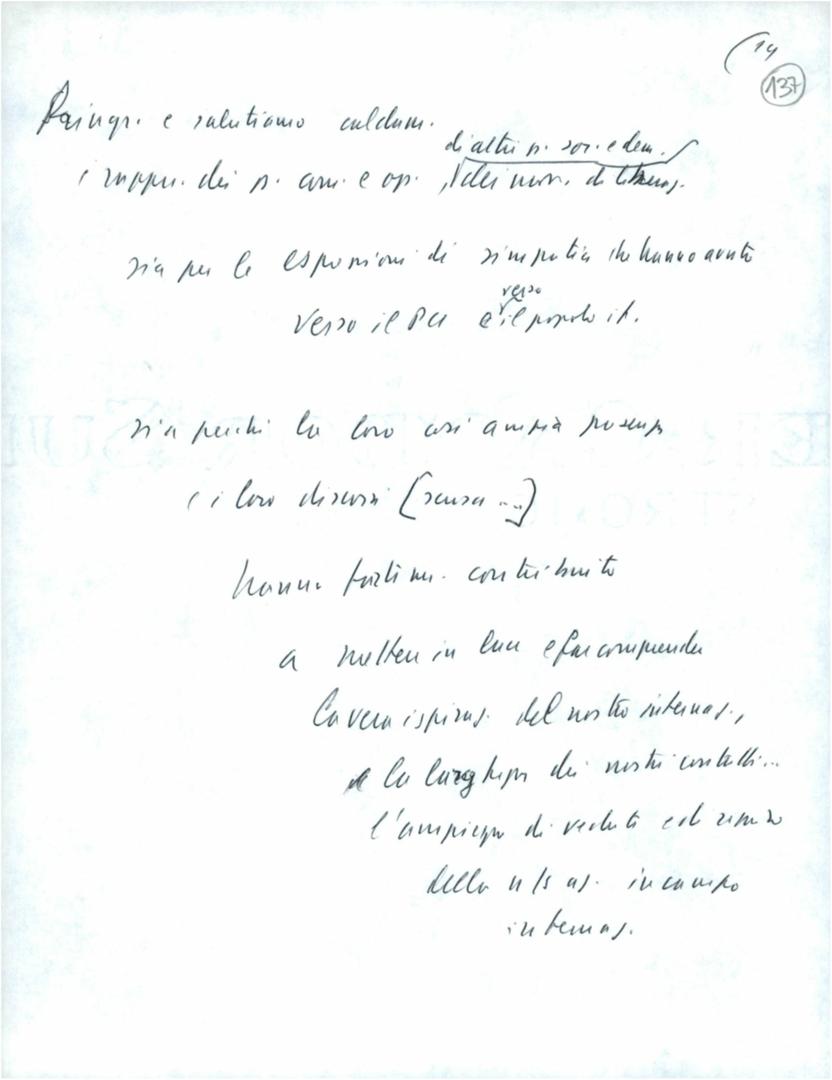 14
137
Ringr. e salutiamo caldam.
di altri p. soc. e dem.
i rappr. dei p. com. e op., dei mov. di liberaz.
sia per le espressioni di simpatia che hanno avuto
verso
verso il PCI e il popolo it.
sia perché la loro così ampia presenza
e i loro discorsi [senza ...]
hanno fortem. contribuito
a mettere in luce e far comprendere
la vera ispiraz. del nostro internaz.,
la larghezza dei nostri contatti...
l'ampiezza di vedute e di
della n/s az. in campo
internaz.